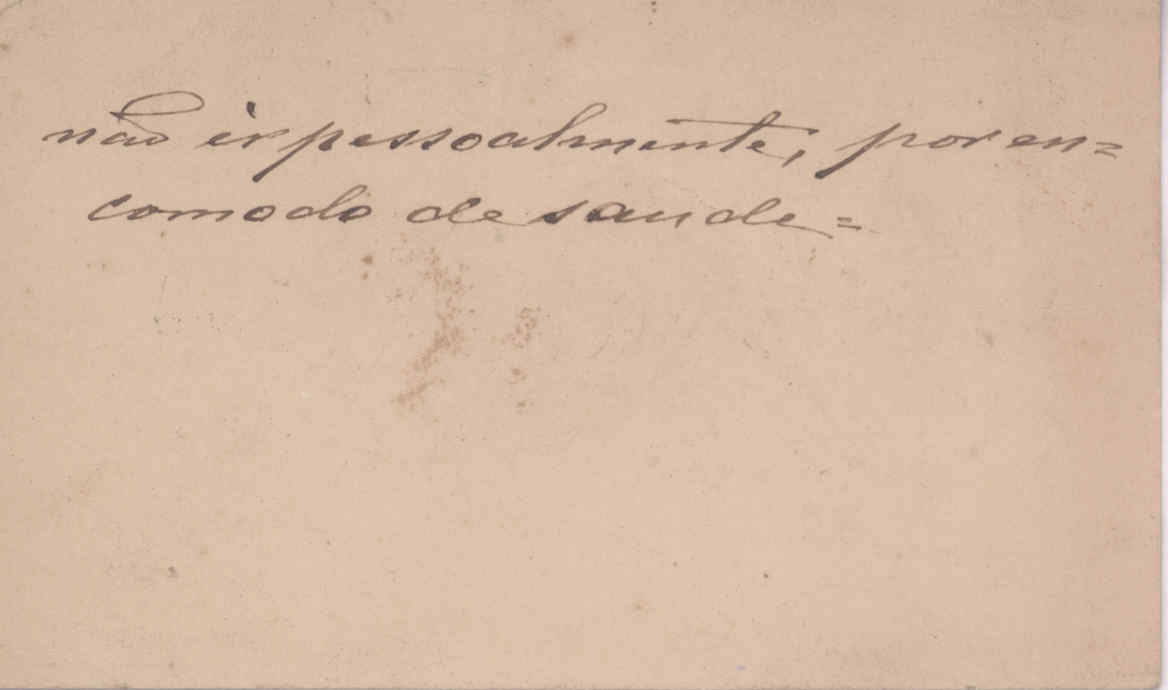 não ir pessoalmente, por en=
comodo de saude=